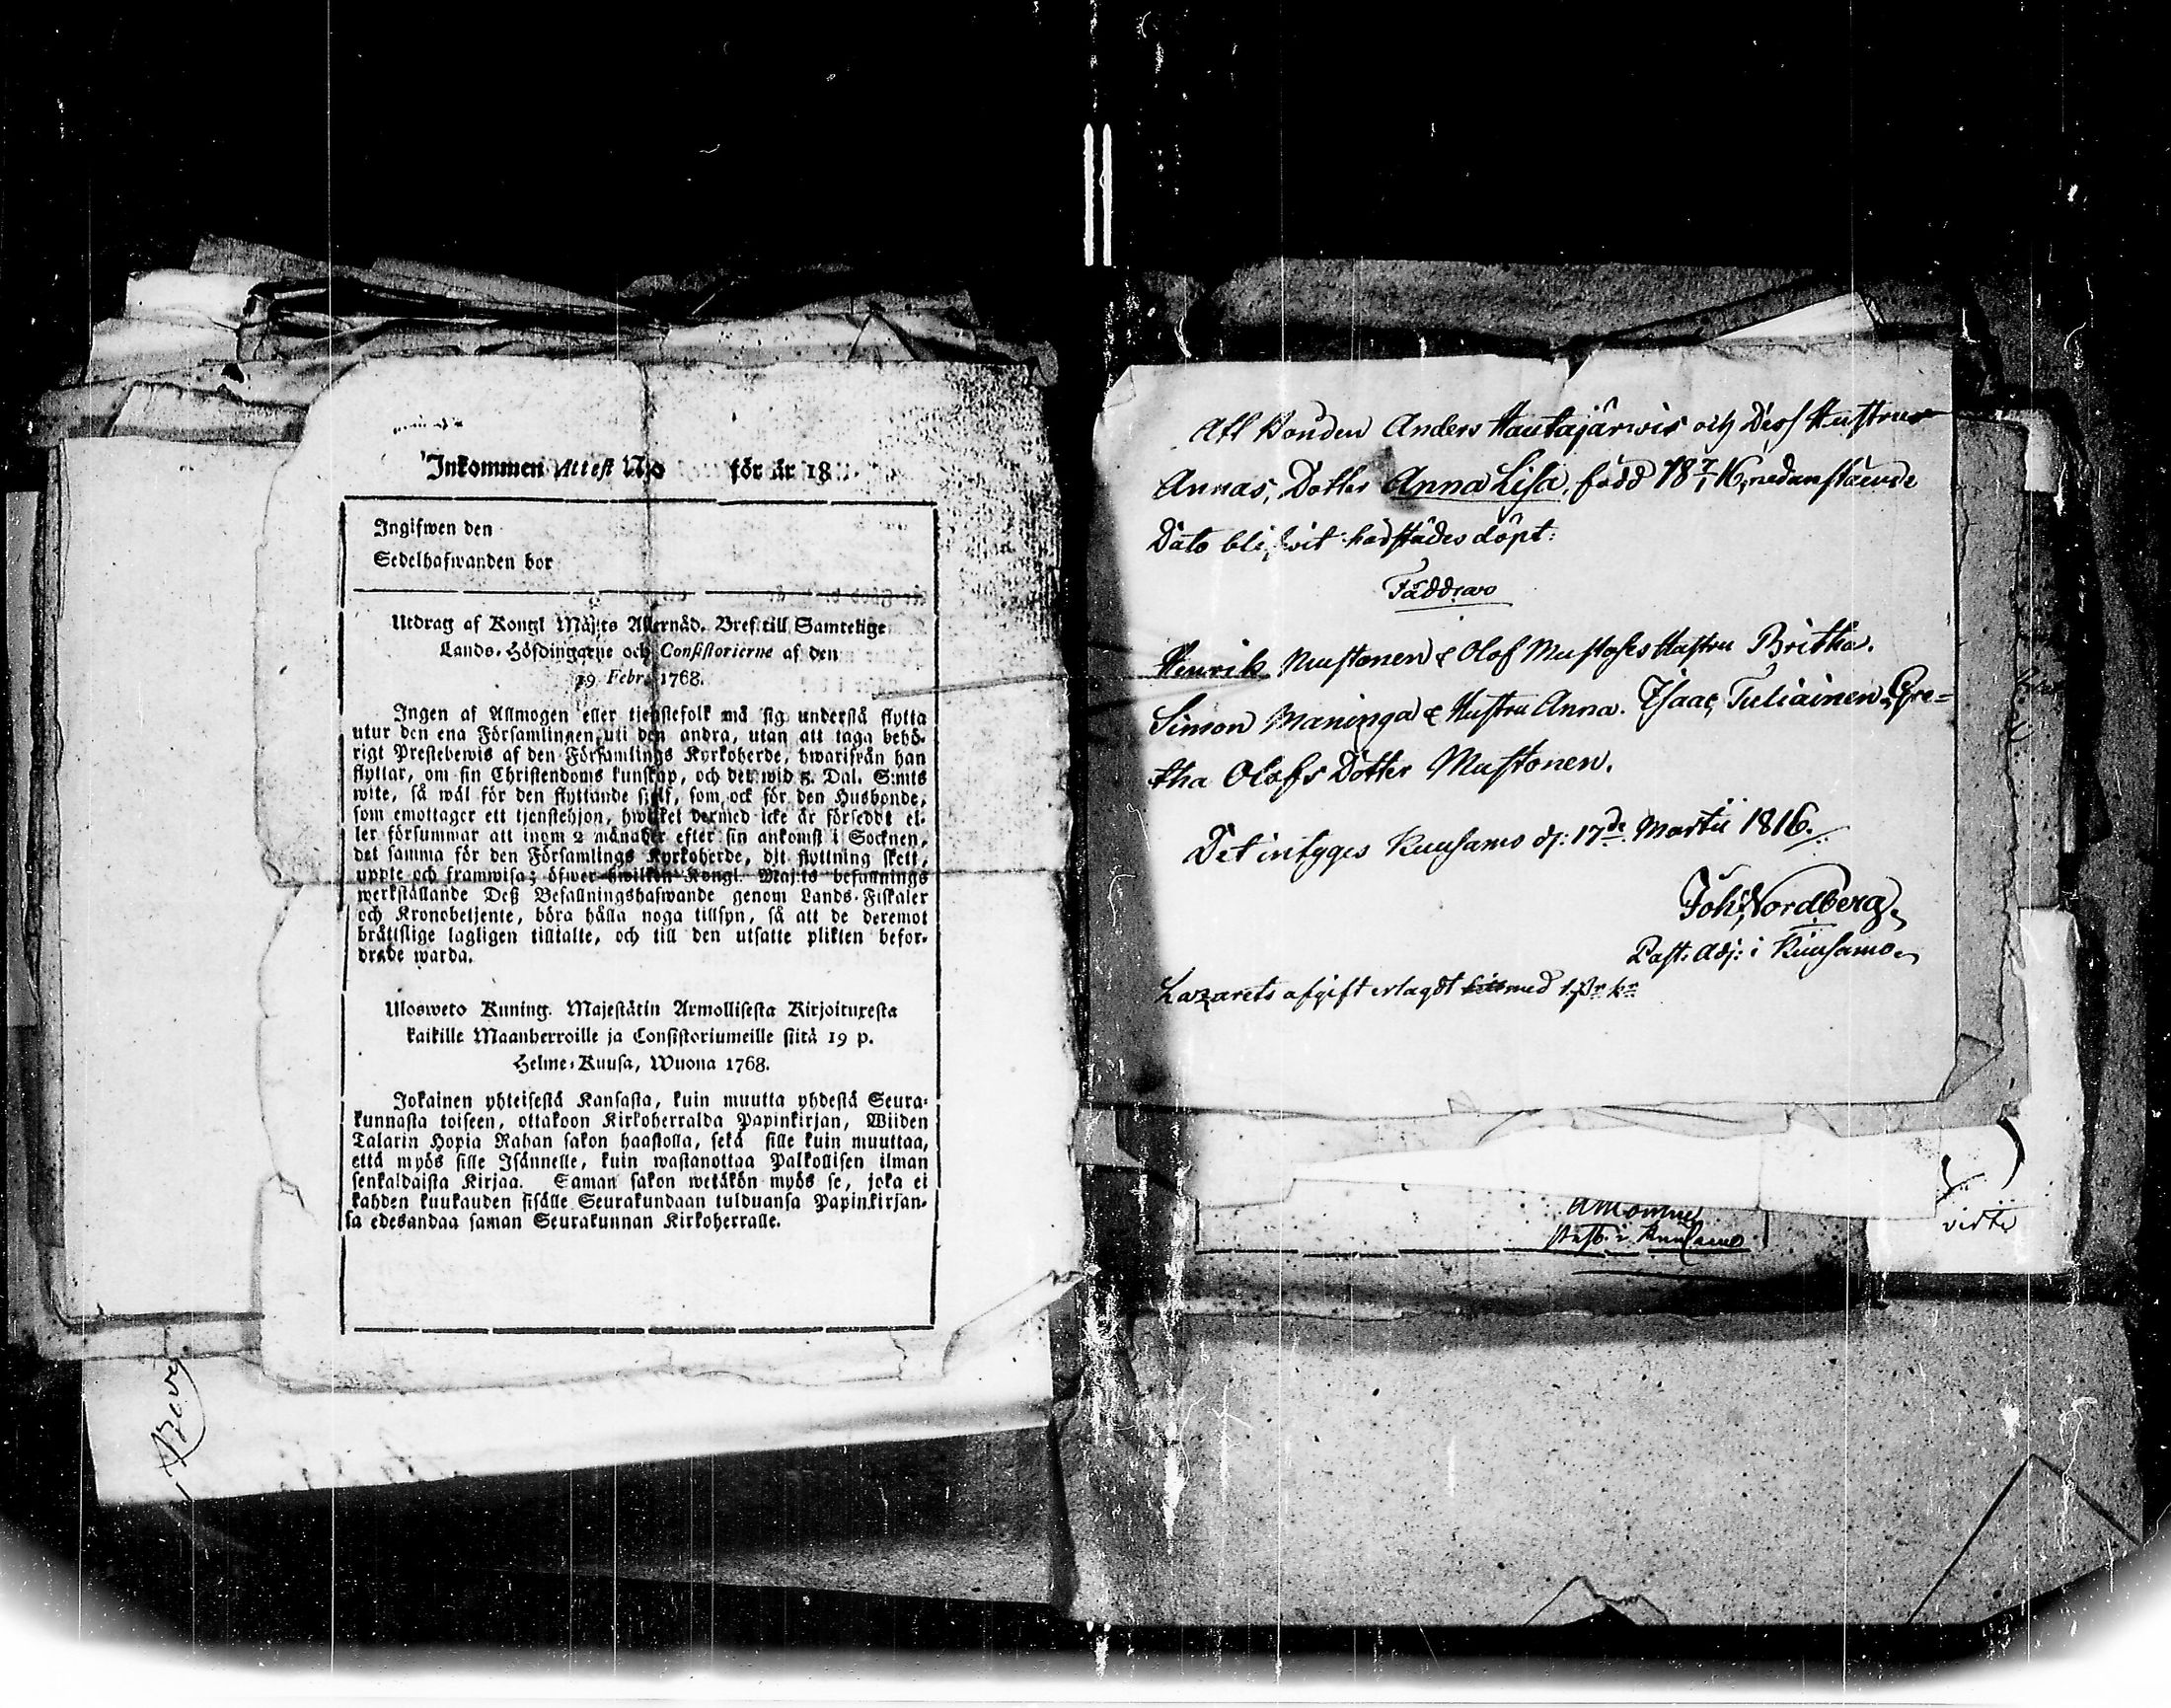 Inkommen Attest N:o för år 18
Ingifwen den
Sedelhafwanden bor
Utdrag af Kongl Maj:ts Allernåd. Bref till Samtelige
Lands-Höfdingarne och Consistorierne af den
19 Febr. 1768.
Ingen af Allmogen eller tienstefolk må sig understå flytta
utur den ena Församlingen uti den andra, utan att taga behö-
rigt Prestebewis af den Församlings Kyrkoherde, hwarifrån han
flyttar, om sin Christendoms kunskap, och det wid 5. Dal. S:mts
wite, så wäl för den flyttande sjelf, som ock för den Husbonde,
som emottager ett tjenstehjon, hwilket dermed icke är försedt el-
ler försummar att inom 2 månader efter sin ankomst i Socknen,
det samma för den Församlings Kyrkoherde, dit flyttning skett,
uppte och framwisa; öfwer hwilken Kongl. Maj:ts befallnings
werkställande Deß Befallningshafwande genom Lands-Fiskaler
och Kronobetjente, böra hålla noga tillsyn, så att de deremot
bråttslige lagligen tilltalte, och till den utsatte plikten befor-
drade warda.
Ulosweto Kuning. Majestätin Armollisesta Kirjoituxesta
kaikille Maanherroille ja Consistoriumeille siitä 19 p.
Helme-Kuusa, Wuona 1768.
Jokainen yhteisestä Kansasta, kuin muutta yhdestä Seura-
kunnasta toiseen, ottakoon Kirkoherralda Papinkirjan, Wiiden
Talarin Hopia Rahan sakon haastolla, sekä sille kuin muuttaa,
että myös sille Isännelle, kuin wastanottaa Palkollisen ilman
senkaldaista Kirjaa. Saman sakon wetäkön myös se, joka ei
kahden kuukauden sisälle Seurakundaan tulduansa Papinkirjan-
sa edesandaa saman Seurakunnan Kirkoherralle.
Att Bonden Anders Hautajärwis och Dess Hustrus
Annas, Dotter Anna Lisa, född 18 7/1 16, nedanstående
Dato blifwit härstädes döpt:
Faddrar
Henrik Mustonen & Olof Mustoses Hustru Britha.
Simon Maninga & Hustru Anna. Isaac Tuliainen, Gre=
tha Olofs Dotter Mustonen.
Det intyges Kuusamo d: 17de Martii 1816.
Joh: Nordberg
Past: Adj: i Kuusamo
Lazarets afgift erlagdt med
i Kuusamo